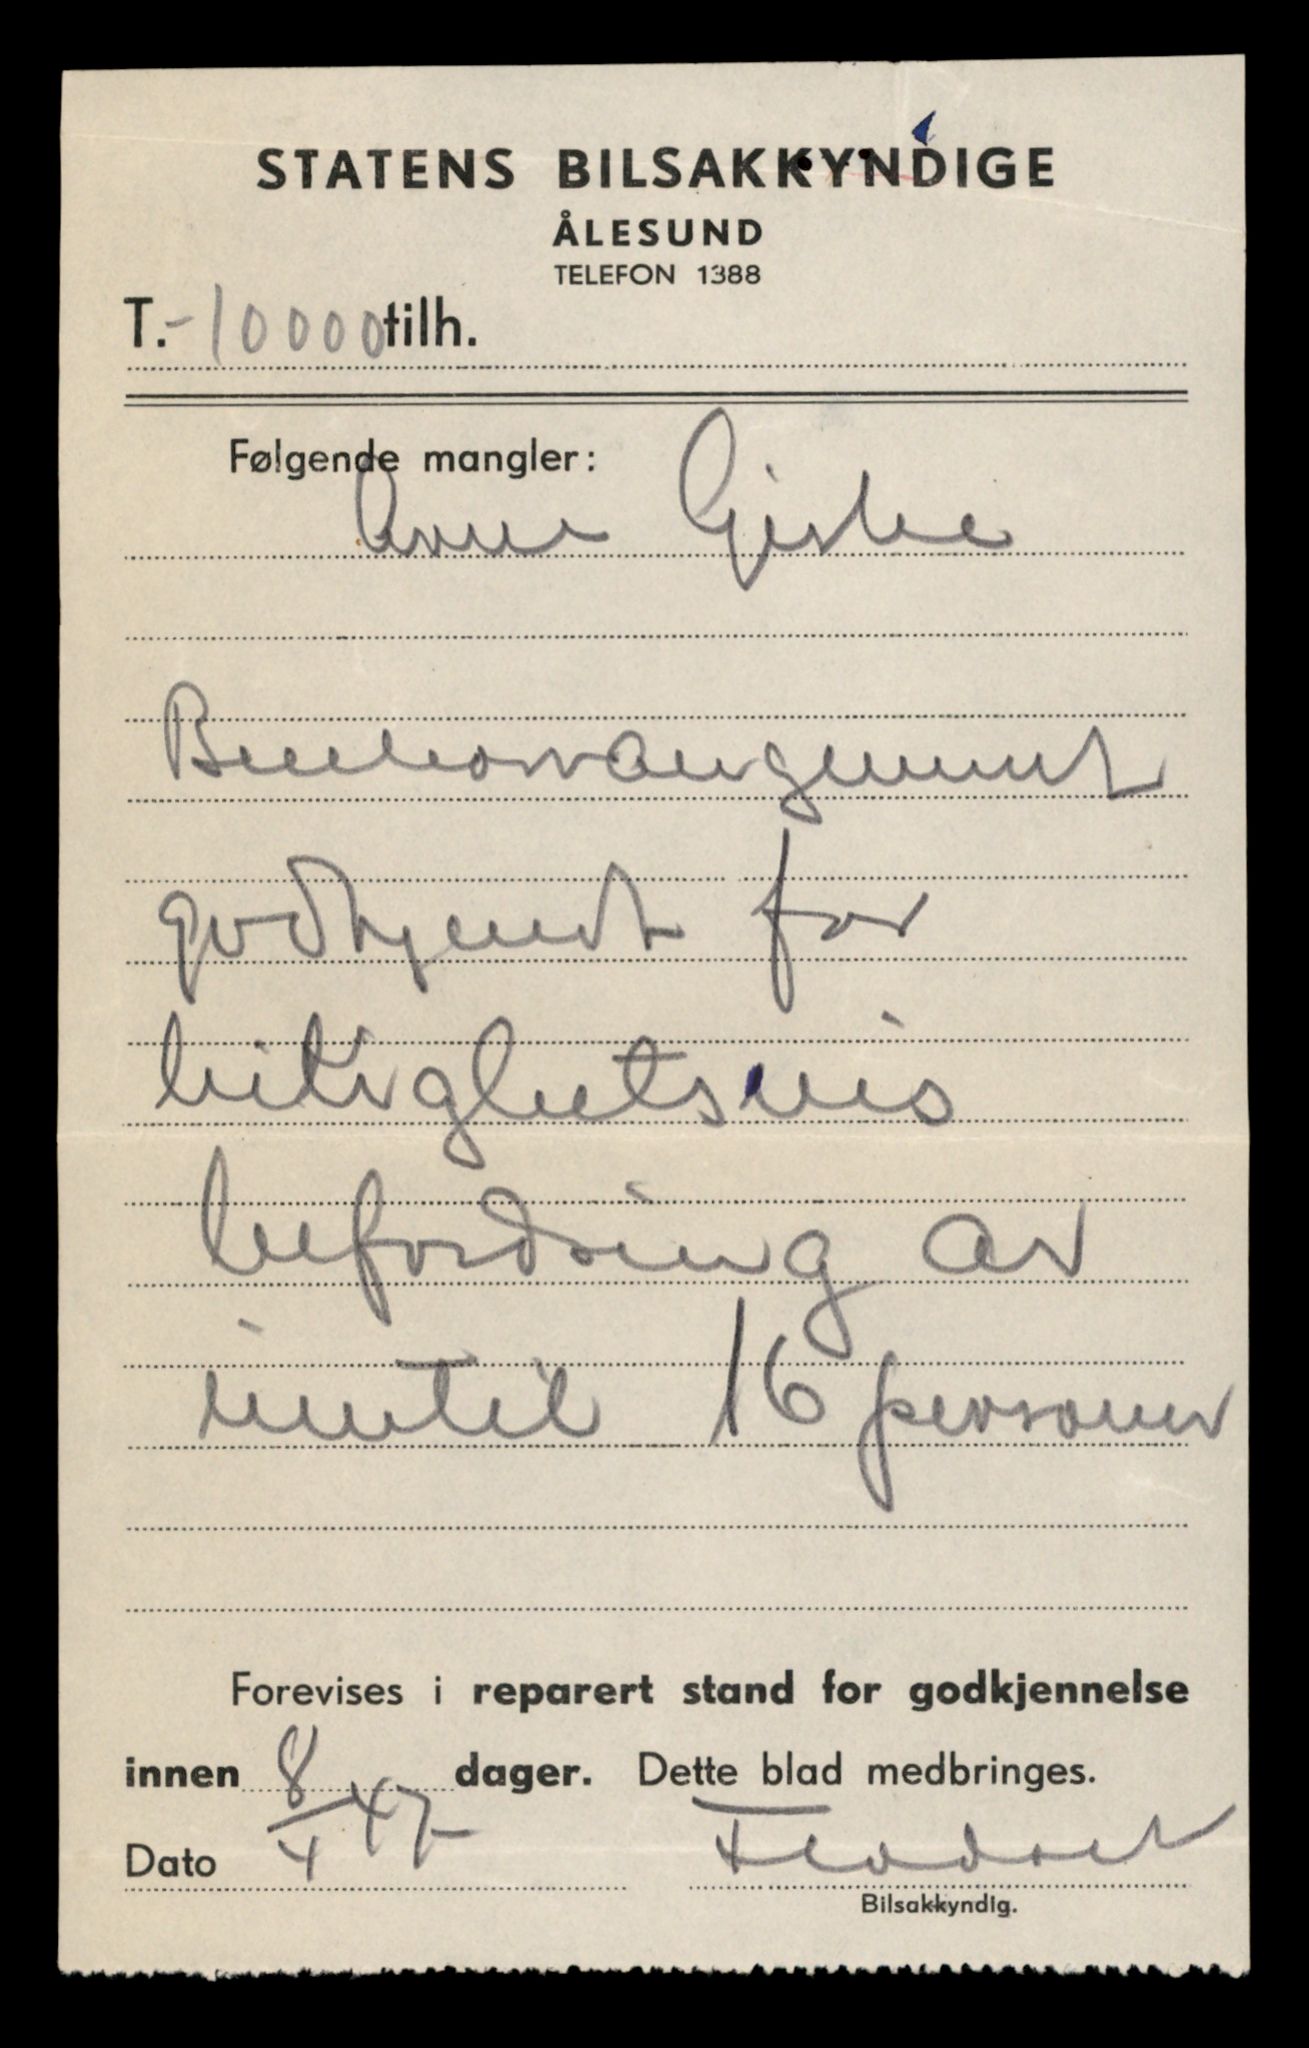 STATENS BILSAKKYNDIGE
ÅLESUND
TELEFON 1388
T.-10000 tilh.
Følgende mangler:
Arne Giske
Benkearrangement
godkjendt for
leilighetsvis
befordring av
inntil 16 personer
Forevises i reparert stand for godkjennelse
innen dager. Dette blad medbringes.
Dato 8/4 47
Bilsakkyndig.